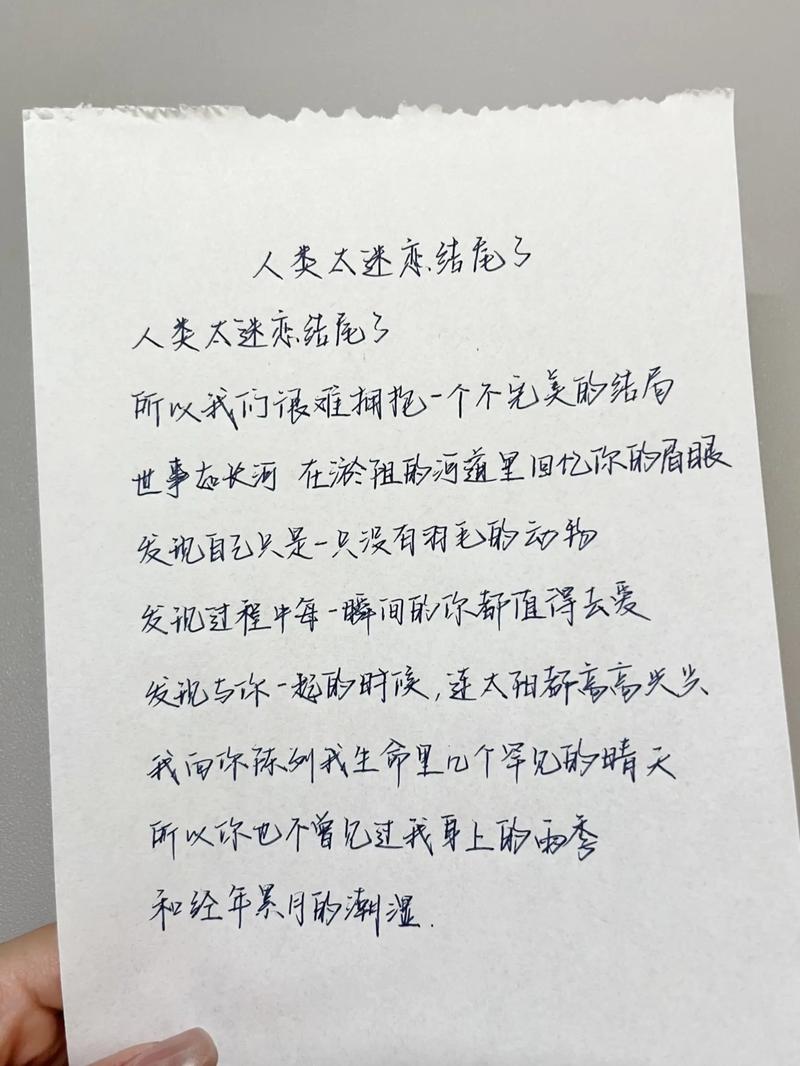 人类太迷恋结尾了
人类太迷恋结尾了
所以我们很难拥抱一个不完美的结局
世事如长河 在淤阻的河道里回忆你的眉眼
发现自己只是一只没有羽毛的动物
发现过程中每一瞬间的你都值得去爱
发现与你一起的时候,连太阳都高高头
我向你陈列我生命里几个罕见的晴天
所以你也不曾见过我身上的雨季
和经年累月的潮湿.